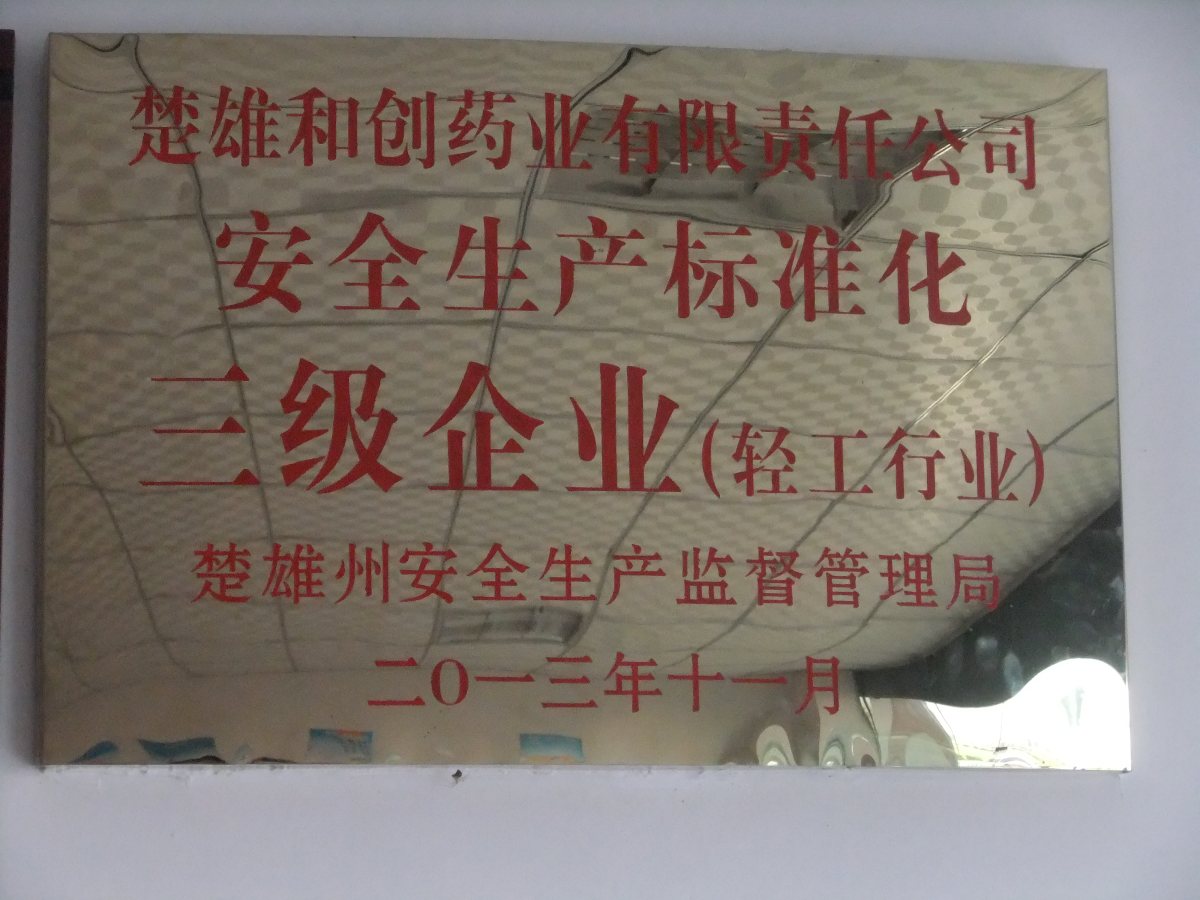 楚雄和创药业有限责任公司
安全生产标准化
三级企业(轻工行业)
楚雄州安全生产监督管理局
二〇一三年十一月